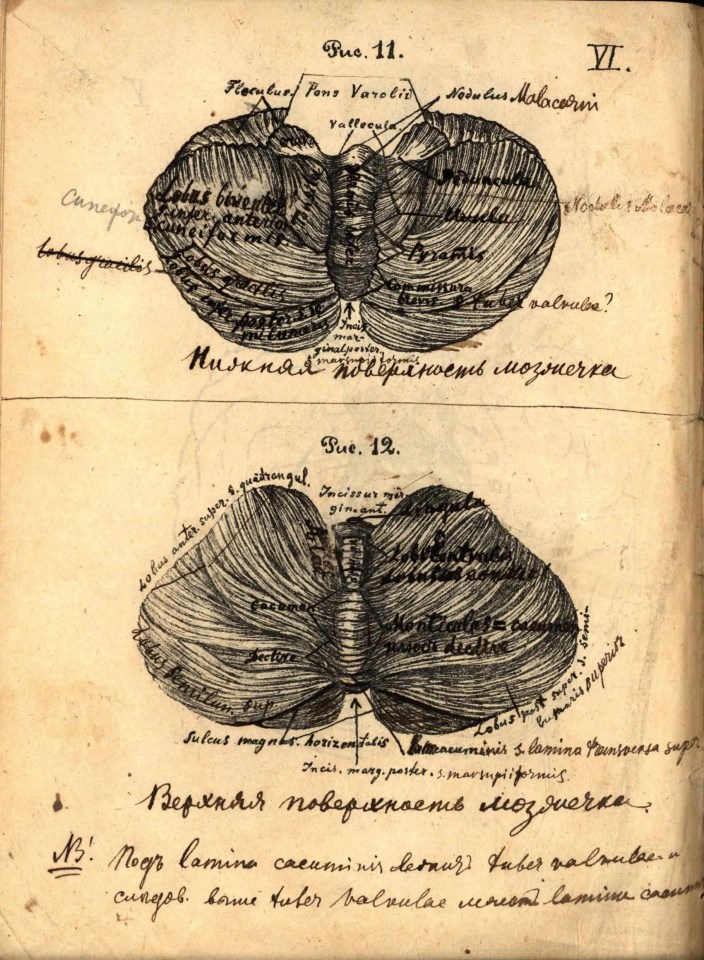 Рис. 11.
VI.
Floculus.
Pons Varolii
Nodulus Malacarni
Vallecula.
Peduncula
Lobus biventer
s. infer. anterior
cuneiformis
Tonsilla
Uvula
Nodulus Malaca
Pyramis
Lobus gracilis
Lobus gracilis
Commissura
brevis s tuber valvulae?
Lobus infer. poster. s. se
milunaris
Incis
mar-
ginal poster.
s. marsupiiformis
Нижняя поверхность мозжечка
Рис. 12.
Lobus anter. super. s. quadrangul.
Incissur mar
gin. ant.
Lingula
Lob. centralis
Cacumen
Monticulus = cacumen
declive
Declive
Lobus semilun. sup.
Lobus post. super. s. semi-
lunaris superior
Sulcus magnus horizontalis
cacuminis s. lamina transversa super.
Incis. marg. poster. s. marsupiiformis
Верхняя поверхность мозжечка.
NB!
Подъ lamina cacuminis лежитъ tuber valvulae и
следов. выше tuber valvulae лежитъ lamina cacumi